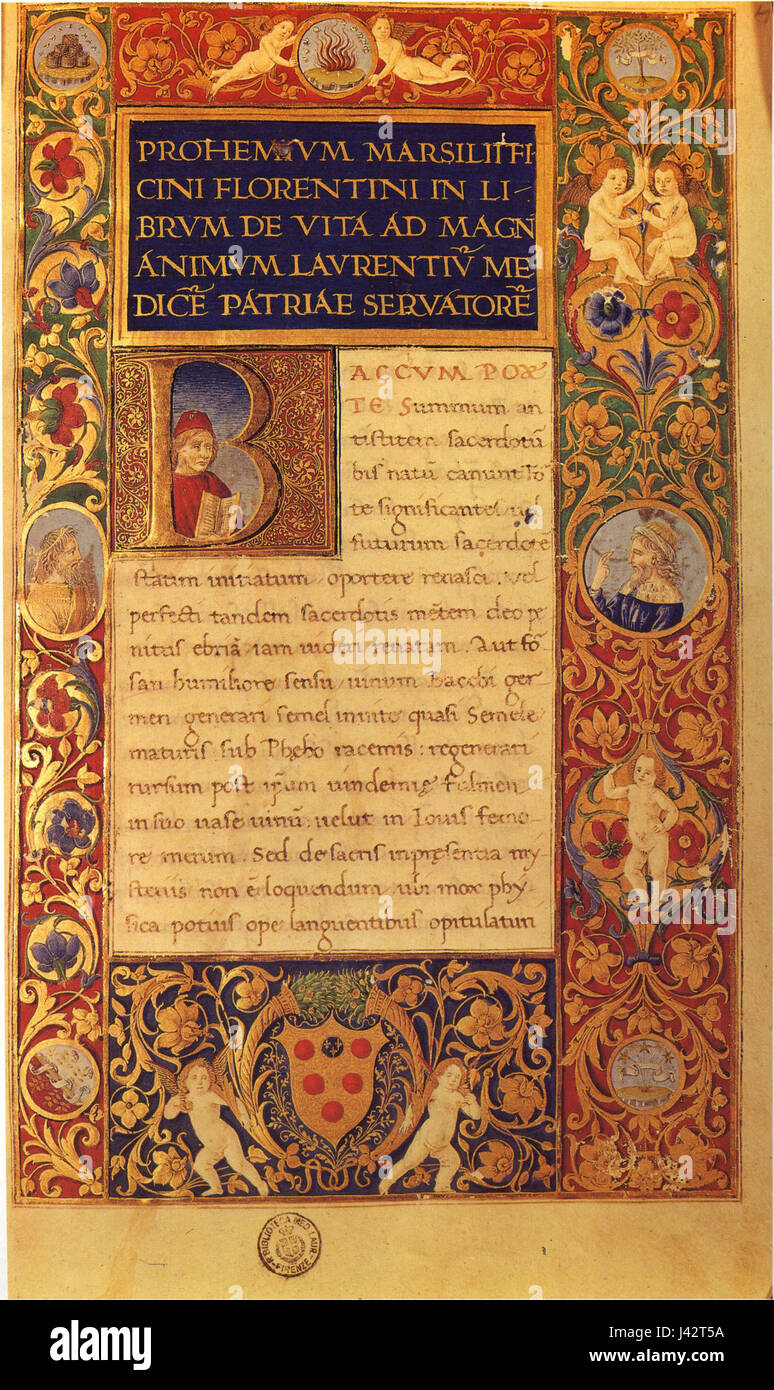 PROHEMIVM MARSILII FI
CINI FLORENTINI IN LI-
BRVM DE VITA AD MAGN
ANIMVM LAVRENTIV̄ ME
DICĒ PATRIAE SERVATORĒ
BACCVM POE
TE Summum an
tistitem sacerdotū
bis natū canunt fo
te significantes vel
futurum sacerdotē
statim initiatum oportere renasci. Vel
perfecti tandem sacerdotis mētem deo pe
nitus ebriā iam videri renatam. Aut fo
sari humiliore sensu vinum Bacchi ger-
men generari semel in vite quasi Semele
maturis sub Phębo racemis: regenerari
rursum post ipsum vindemię fulmen
in suo vase vinū: velut in Iovis femo-
re merum. Sed de sacris in pręsentia my-
steriis non ē loquendum ubi mox phy-
sica potius ope languentibus opitulaturi
BIBLIOTECA MED. LAUR.
FIRENZE
alamy
alamy stock photo
J42T5A
www.alamy.com